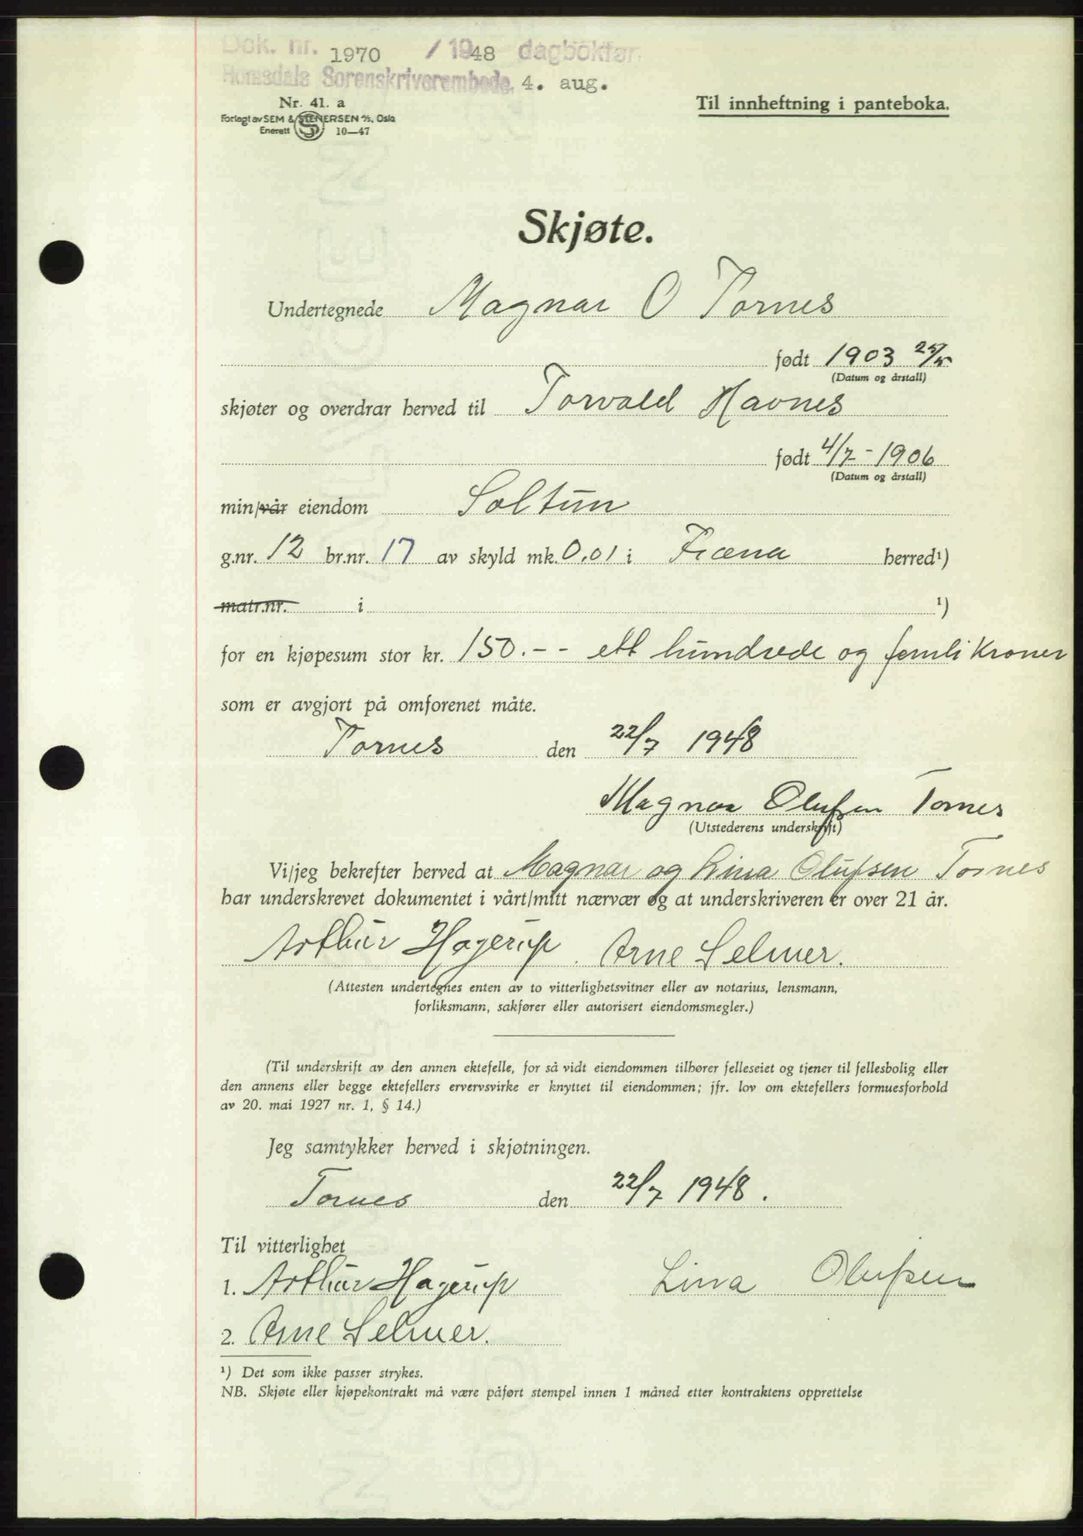 Dok. nr. 1970 / 1948 dagbokfør.
Romsdals Sorenskriverembede, 4. aug.
Nr. 41. a
Forlagt av SEM & STENERSEN A/S, Oslo
Enerett 10—47
Til innheftning i panteboka.
Skjøte.
Undertegnede Magnar O Tornes
født 1903 25/5
(Datum og årstall)
skjøter og overdrar herved til Torvald Havnes
født 4/7 - 1906
(Datum og årstall)
min/vår eiendom Soltun
g.nr. 12 br.nr. 17 av skyld mk. 0.01 i Fræna herred¹)
matr.nr. i ¹)
for en kjøpesum stor kr. 150.-- ett hundrede og femti kroner
som er avgjort på omforenet måte.
Tornes den 22/7 1948
Magnar Olufsen Tornes
(Utstederens underskrift)
Vi/jeg bekrefter herved at Magnar og Lina Olufsen Tornes
har underskrevet dokumentet i vårt/mitt nærvær og at underskriveren er over 21 år.
Arthur Hagerup. Arne Selmer.
(Attesten undertegnes enten av to vitterlighetsvitner eller av notarius, lensmann,
forliksmann, sakfører eller autorisert eiendomsmegler.)
(Til underskrift av den annen ektefelle, for så vidt eiendommen tilhører felleseiet og tjener til fellesbolig eller
den annens eller begge ektefellers ervervsvirke er knyttet til eiendommen; jfr. lov om ektefellers formuesforhold
av 20. mai 1927 nr. 1, § 14.)
Jeg samtykker herved i skjøtningen.
Tornes den 22/7 1948.
Til vitterlighet
1. Arthur Hagerup Lina Olufsen
2. Arne Selmer.
¹) Det som ikke passer strykes.
NB. Skjøte eller kjøpekontrakt må være påført stempel innen 1 måned etter kontraktens opprettelse